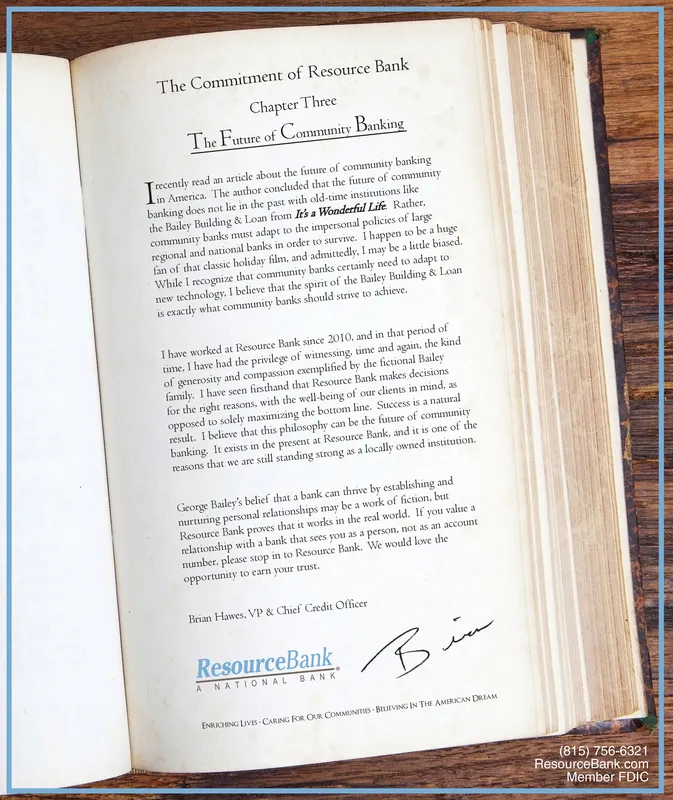 The Commitment of Resource Bank
Chapter Three
The Future of Community Banking
I recently read an article about the future of community banking
in America. The author concluded that the future of community
banking does not lie in the past with old-time institutions like
the Bailey Building & Loan from It's a Wonderful Life. Rather,
community banks must adapt to the impersonal policies of large
regional and national banks in order to survive. I happen to be a huge
fan of that classic holiday film, and admittedly, I may be a little biased.
While I recognize that community banks certainly need to adapt to
new technology, I believe that the spirit of the Bailey Building & Loan
is exactly what community banks should strive to achieve.
I have worked at Resource Bank since 2010, and in that period of
time, I have had the privilege of witnessing, time and again, the kind
of generosity and compassion exemplified by the fictional Bailey
family. I have seen firsthand that Resource Bank makes decisions
for the right reasons, with the well-being of our clients in mind, as
opposed to solely maximizing the bottom line. Success is a natural
result. I believe that this philosophy can be the future of community
banking. It exists in the present at Resource Bank, and it is one of the
reasons that we are still standing strong as a locally owned institution.
George Bailey's belief that a bank can thrive by establishing and
nurturing personal relationships may be a work of fiction, but
Resource Bank proves that it works in the real world. If you value a
relationship with a bank that sees you as a person, not as an account
number, please stop in to Resource Bank. We would love the
opportunity to earn your trust.
Brian Hawes, VP & Chief Credit Officer
Brian
ResourceBank®
A NATIONAL BANK
ENRICHING LIVES · CARING FOR OUR COMMUNITIES · BELIEVING IN THE AMERICAN DREAM
(815) 756-6321
ResourceBank.com
Member FDIC